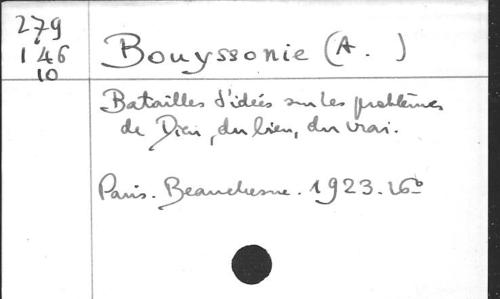 279
146
10
Bouyssonie (A. )
Batailles d'idées sur les problèmes
de Dieu, du bien, du vrai.
Paris. Beauchesne. 1923. 16°